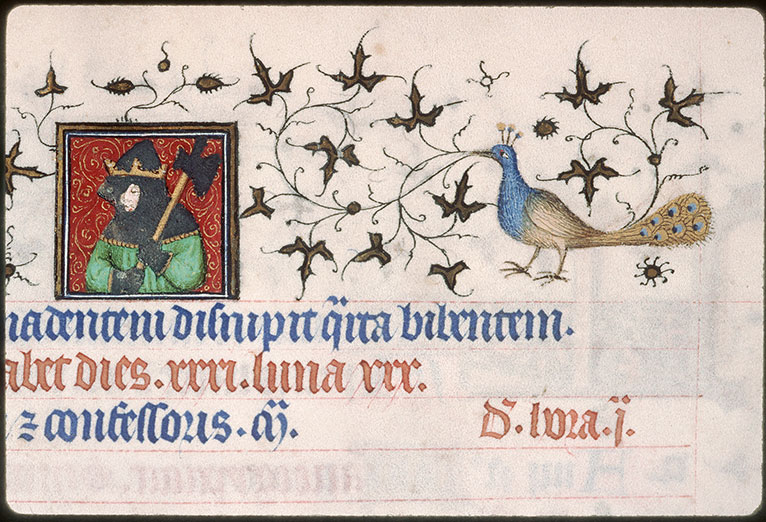 madentem disrupit q̄rta bibentem.
abet dies. xxxi. luna xxx.
⁊ confessoris. iij.
D. lvra. j.